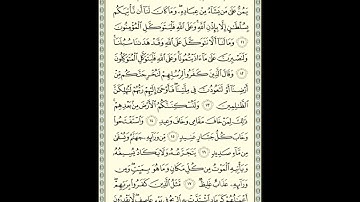 يَمُنُّ عَلَىٰ مَن يَشَآءُ مِنْ عِبَادِهِۦ ۖ وَمَا كَانَ لَنَآ أَن نَّأْتِيَكُم
بِسُلْطَٰنٍ إِلَّا بِإِذْنِ ٱللَّهِ ۚ وَعَلَى ٱللَّهِ فَلْيَتَوَكَّلِ ٱلْمُؤْمِنُونَ
١١ وَمَا لَنَآ أَلَّا نَتَوَكَّلَ عَلَى ٱللَّهِ وَقَدْ هَدَىٰنَا سُبُلَنَا ۚ
وَلَنَصْبِرَنَّ عَلَىٰ مَآ ءَاذَيْتُمُونَا ۚ وَعَلَى ٱللَّهِ فَلْيَتَوَكَّلِ ٱلْمُتَوَكِّلُونَ
١٢ وَقَالَ ٱلَّذِينَ كَفَرُوا۟ لِرُسُلِهِمْ لَنُخْرِجَنَّكُم مِّنْ
أَرْضِنَآ أَوْ لَتَعُودُنَّ فِى مِلَّتِنَا ۖ فَأَوْحَىٰٓ إِلَيْهِمْ رَبُّهُمْ لَنُهْلِكَنَّ
ٱلظَّٰلِمِينَ ١٣ وَلَنُسْكِنَنَّكُمُ ٱلْأَرْضَ مِنۢ بَعْدِهِمْ ۚ
ذَٰلِكَ لِمَنْ خَافَ مَقَامِى وَخَافَ وَعِيدِ ١٤ وَٱسْتَفْتَحُوا۟
وَخَابَ كُلُّ جَبَّارٍ عَنِيدٍ ١٥ مِّن وَرَآئِهِۦ جَهَنَّمُ وَيُسْقَىٰ
مِن مَّآءٍ صَدِيدٍ ١٦ يَتَجَرَّعُهُۥ وَلَا يَكَادُ يُسِيغُهُۥ
وَيَأْتِيهِ ٱلْمَوْتُ مِن كُلِّ مَكَانٍ وَمَا هُوَ بِمَيِّتٍ ۖ وَمِن
وَرَآئِهِۦ عَذَابٌ غَلِيظٌ ١٧ مَّثَلُ ٱلَّذِينَ كَفَرُوا۟ بِرَبِّهِمْ ۖ
أَعْمَٰلُهُمْ كَرَمَادٍ ٱشْتَدَّتْ بِهِ ٱلرِّيحُ فِى يَوْمٍ عَاصِفٍ ۖ لَّا يَقْدِرُونَ